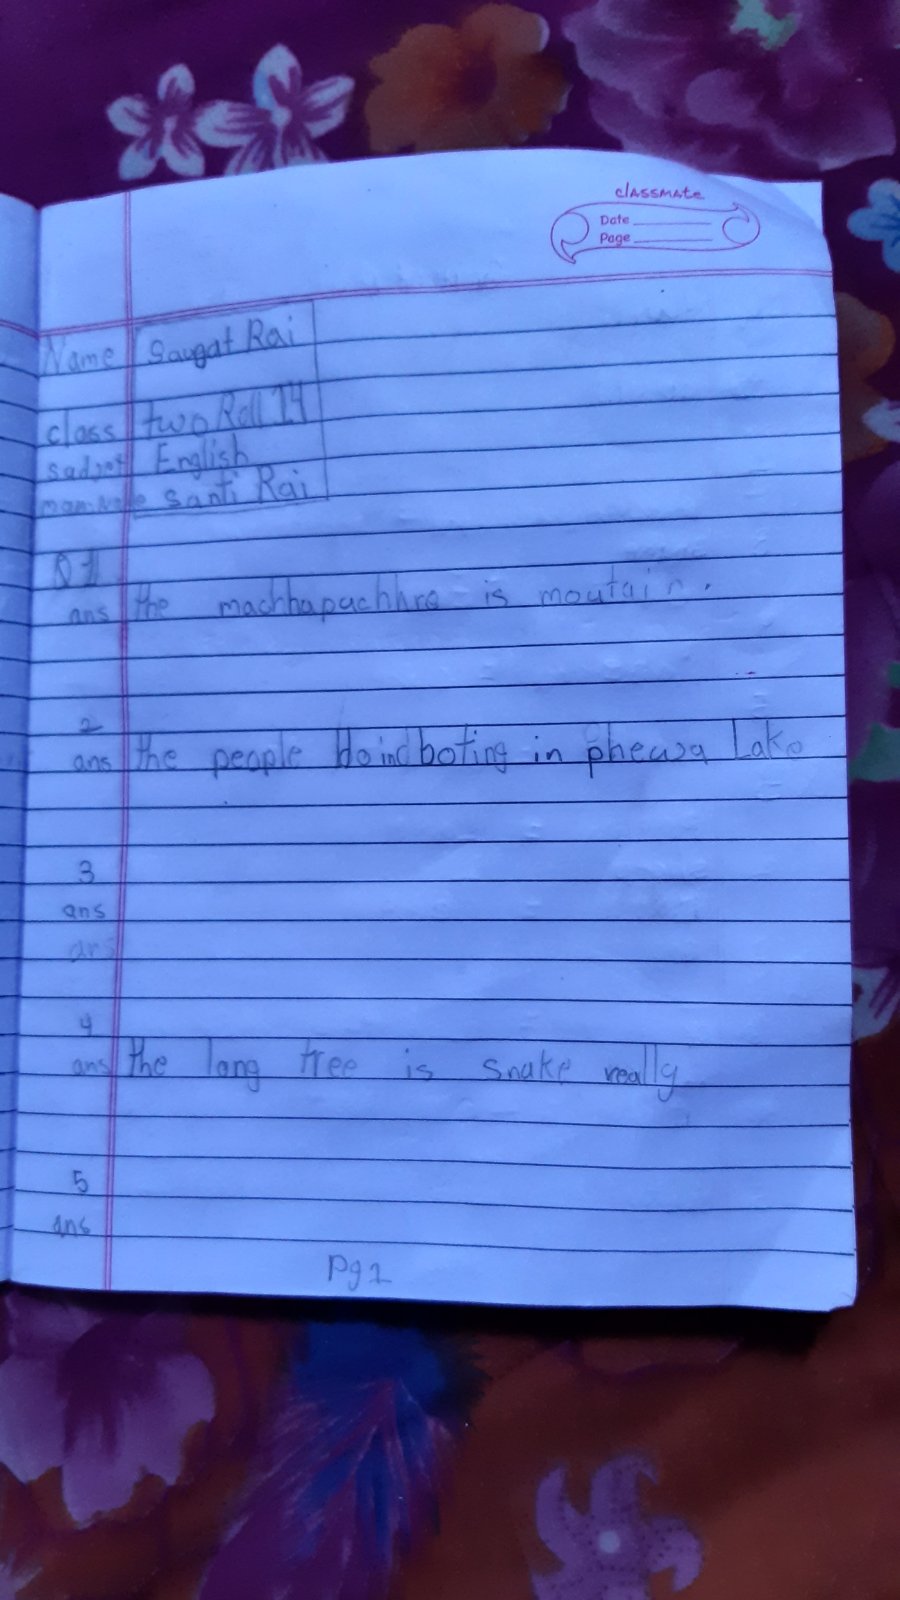 classmate
Date
Page
Name Saugat Rai
class two Roll 14
English
santi Rai
Q 1
ans the machhapuchhre is moutain.
2
ans the people boting in phewa Lake
3
ans
ans
4
ans the long tree is snake really
5
ans
Pg 1